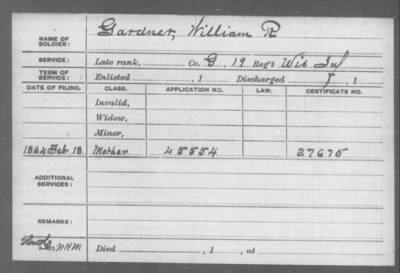 NAME OF SOLDIER: Gardner, William R
SERVICE: Late rank, Co. G, 19 Reg't Wis Inf
TERM OF SERVICE: Enlisted , 1 Discharged , 1
DATE OF FILING. CLASS. APPLICATION NO. LAW. CERTIFICATE NO.
Invalid,
Widow,
Minor,
1864 Feb 18 Mother 45554 27675
ADDITIONAL SERVICES:
REMARKS:
Died , 1 , at